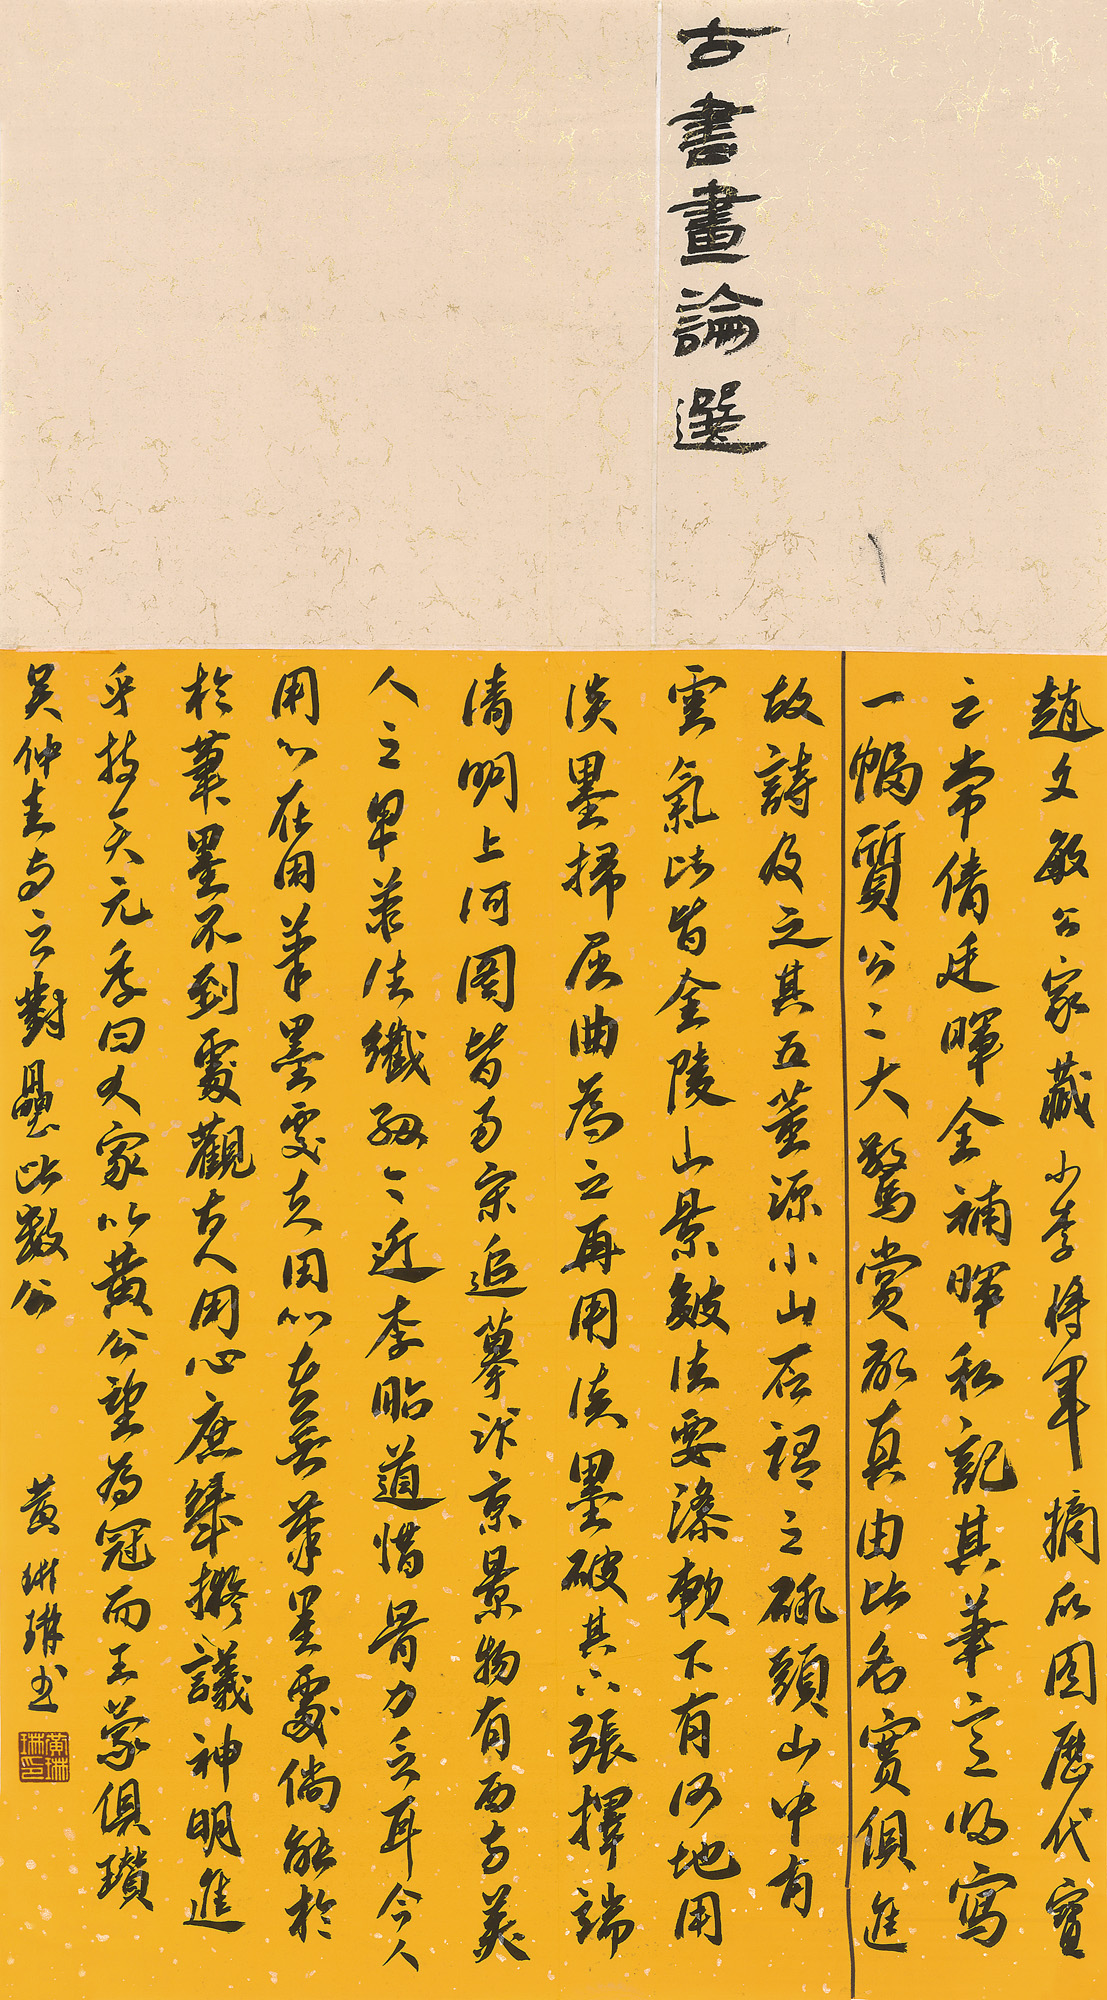 古書畫論選
趙文敏公家藏小李將軍摘瓜圖歷代寶
之常倩廷暉全補暉私記其筆意歸寫
一幅質公公大驚賞亂真由此名實俱進
故詩及之其五董源小山石謂之礬頭山中有
雲氣此皆金陵山景皴法要滲軟下有沙地用
淡墨掃屈曲為之再用淡墨破其六張擇端
清明上河圖皆南宋追摹汴京景物有西方美
人之思筆法纖細近近李昭道惜骨力乏耳今人
用心在用筆墨處夫用心在無筆墨處倘能於
於筆墨不到處觀古人用心庶幾擬議神明進
乎技矣元季四大家以黃公望為冠而王蒙俱瓚
吳仲圭與之對壘此數公
黃琳琳書